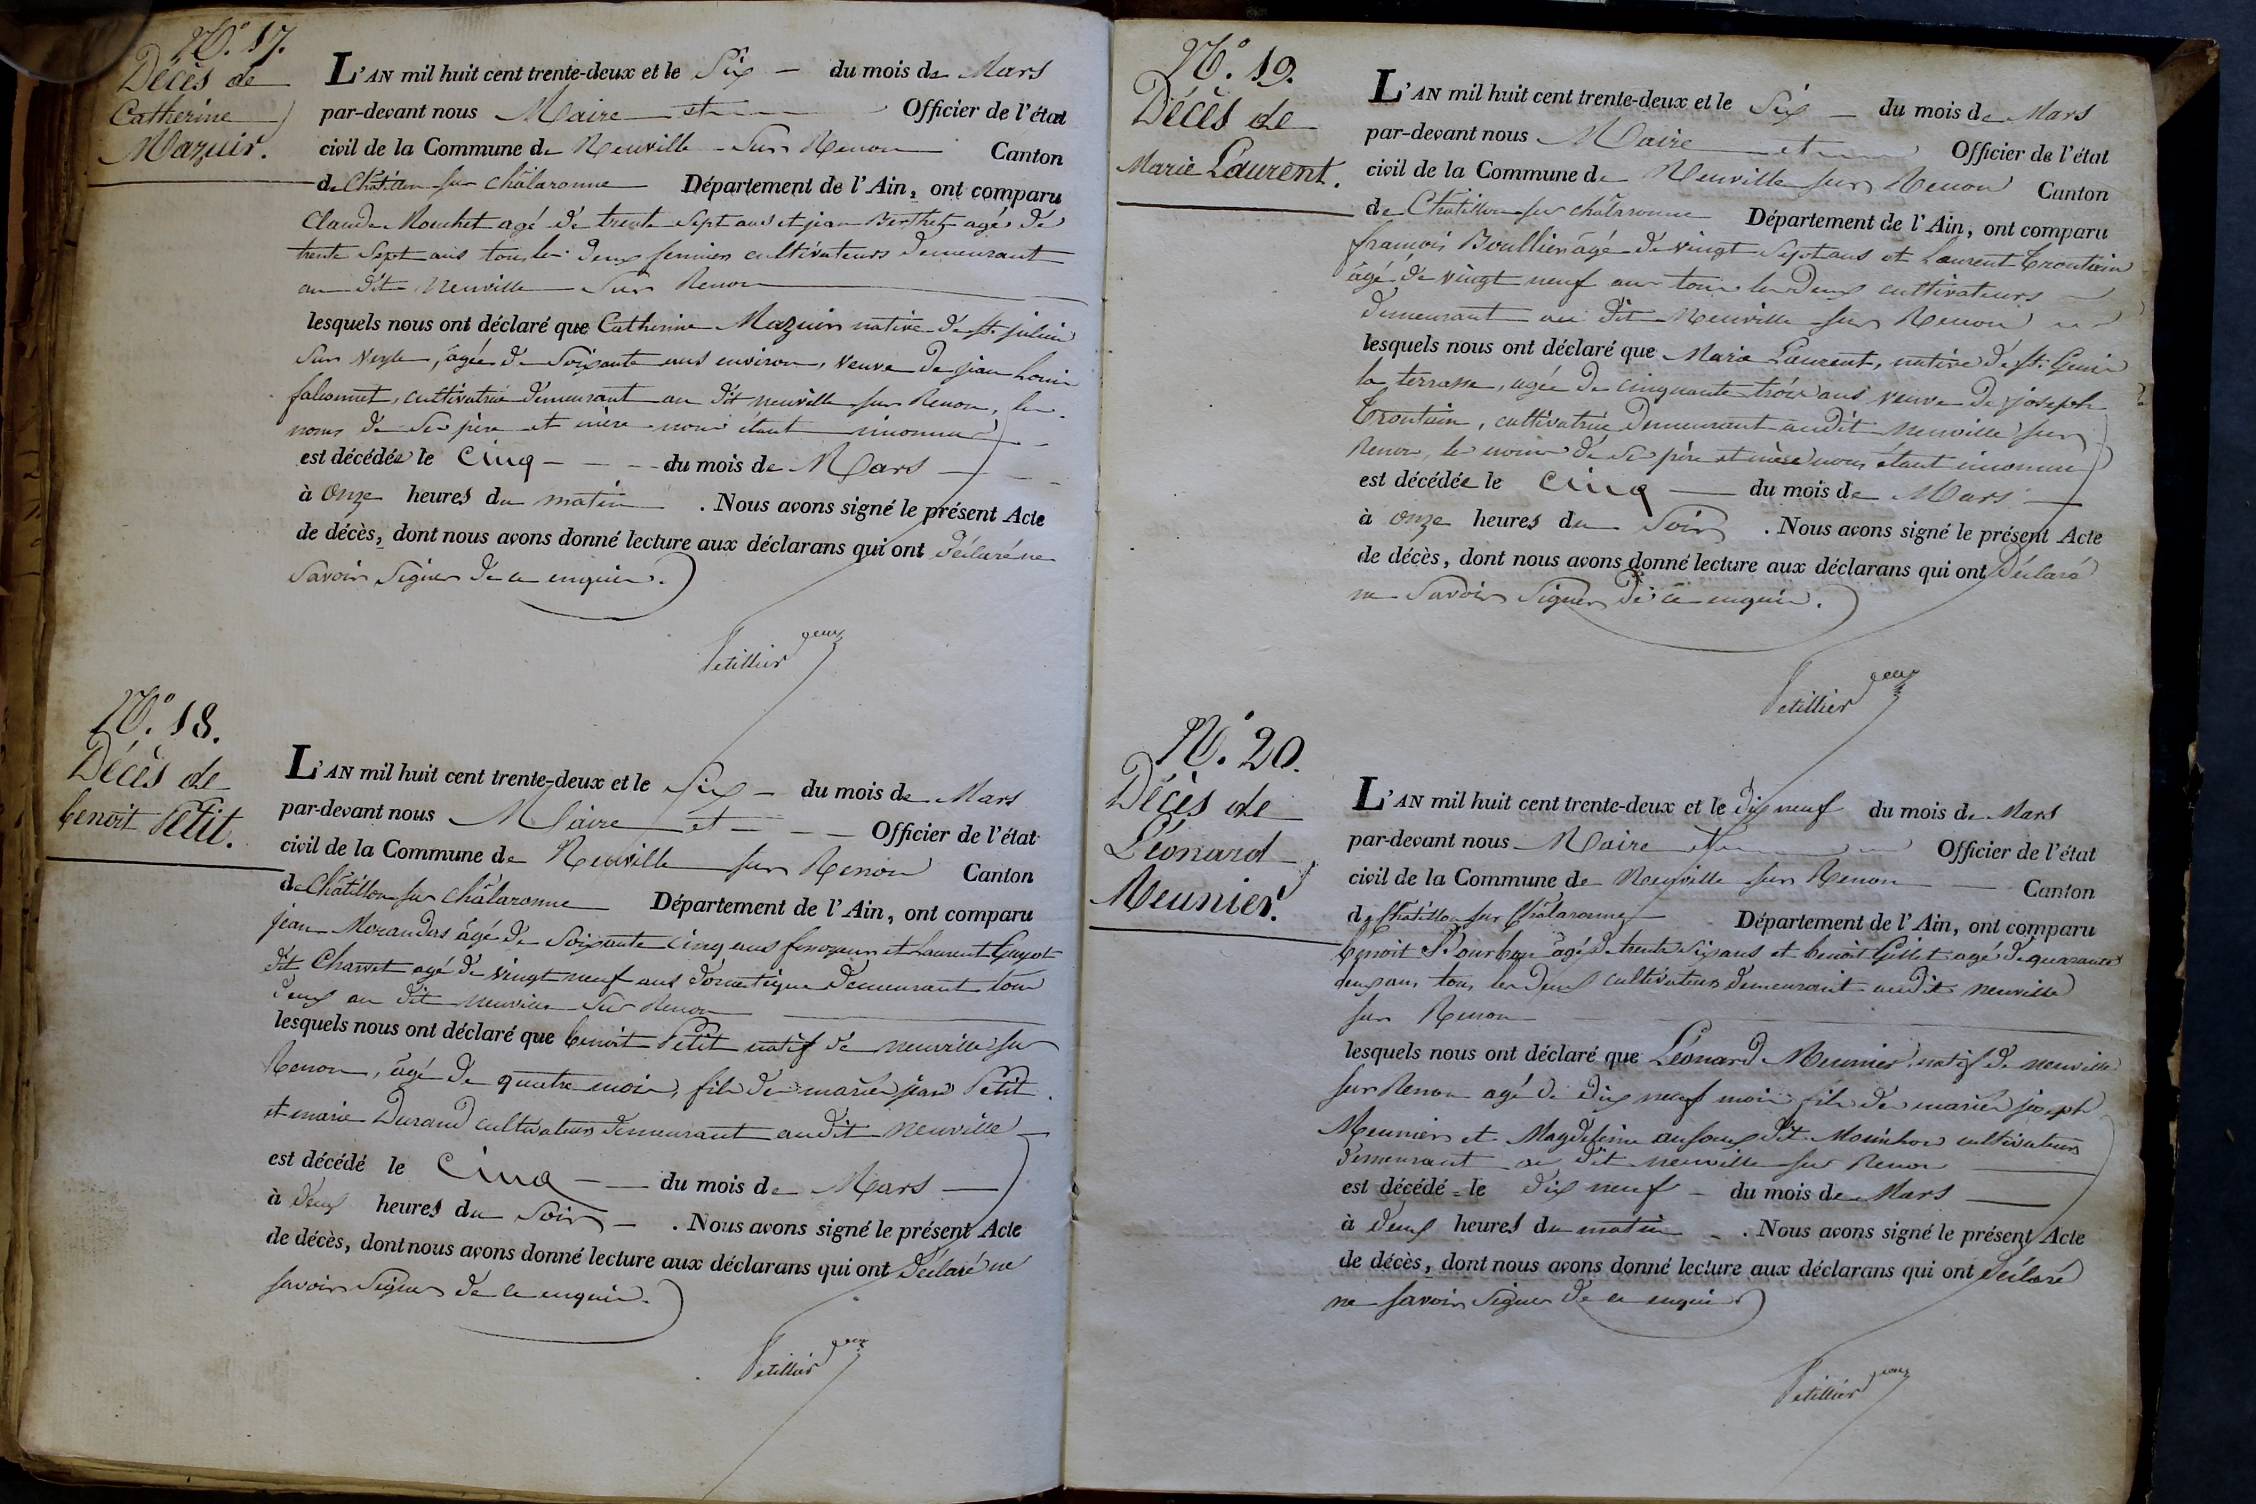 N.° 17.
Décès de
Catherine
Mazuir.
L'AN mil huit cent trente-deux et le Six — du mois de Mars
par-devant nous Maire et — Officier de l'état
civil de la Commune de Neuville Sur Renon Canton
de Châtillon sur châlaronne Département de l'Ain, ont comparu
Claude Mouchet agé de trente Sept ans et jean Berthet agé de
trente Sept ans tous les deux fermiers cultivateurs demeurant
au dit Neuville Sur Renon
lesquels nous ont déclaré que Catherine Mazuir native de St. julien
Sur Veyle, âgée de Soixante ans environ, veuve de jean Louis
falconnet, cultivatrice demeurant au dit neuville sur Renon, les
noms de Ses père et mère nous étant inconnus
est décédée le Cinq — du mois de Mars —
à Onze heures du matin . Nous avons signé le présent Acte
de décès, dont nous avons donné lecture aux déclarans qui ont déclaré ne
Savoir Signer de ce enquis.
Petillier
N.° 18.
Décès de
benoit Petit.
L'AN mil huit cent trente-deux et le Six — du mois de Mars
par-devant nous Maire et — Officier de l'état
civil de la Commune de Neuville sur Renon Canton
de Châtillon sur châlaronne Département de l'Ain, ont comparu
jean Morandas âgé de Soixante cinq ans et Laurent Guyot
dit Charvet agé de vingt neuf ans domestique demeurant tous
deux au dit neuville Sur Renon
lesquels nous ont déclaré que benoit Petit natif de neuville sur
Renon, âgé de quatre mois, fils de mariés jean Petit
et marie Durand cultivateurs demeurant audit Neuville —
est décédé le Cinq — du mois de Mars —
à deux heures du Soir — . Nous avons signé le présent Acte
de décès, dont nous avons donné lecture aux déclarans qui ont déclaré ne
savoir Signer de ce enquis.
Petillier
N.° 19.
Décès de
Marie Laurent.
L'AN mil huit cent trente-deux et le Six — du mois de Mars
par-devant nous Maire et — Officier de l'état
civil de la Commune de Neuville sur Renon Canton
de Chatillon sur châlaronne Département de l'Ain, ont comparu
françois Boullier âgé de vingt Sept ans et Laurent Trontin
âgé de vingt neuf ans tous les deux cultivateurs
demeurant au dit Neuville sur Renon
lesquels nous ont déclaré que Marie Laurent, native de St. Genis
la terrasse, agée de cinquante trois ans veuve de joseph
Trontin, cultivatrice demeurant audit neuville sur
Renon, les noms de Ses père et mère nous étant inconnus
est décédée le Cinq — du mois de Mars —
à onze heures du Soir . Nous avons signé le présent Acte
de décès, dont nous avons donné lecture aux déclarans qui ont déclaré
ne Savoir Signer de ce enquis.
Petillier
N.° 20.
Décès de
Léonard
Meunier.
L'AN mil huit cent trente-deux et le dix neuf du mois de Mars
par-devant nous Maire et — Officier de l'état
civil de la Commune de Neuville sur Renon — Canton
de Châtillon sur Châlaronne Département de l'Ain, ont comparu
benoit Bourbon agé de trente Six ans et benoit Gillet agé de quarante
deux ans tous les deux cultivateurs demeurant audit neuville
sur Renon
lesquels nous ont déclaré que Léonard Meunier natif de neuville
sur Renon agé de dix neuf mois fils de mariés joseph
Meunier et dit cultivateurs
demeurant au dit neuville sur Renon —
est décédé le dix neuf — du mois de Mars —
à deux heures du matin — . Nous avons signé le présent Acte
de décès, dont nous avons donné lecture aux déclarans qui ont déclaré
ne savoir Signer de ce enquis
Petillier